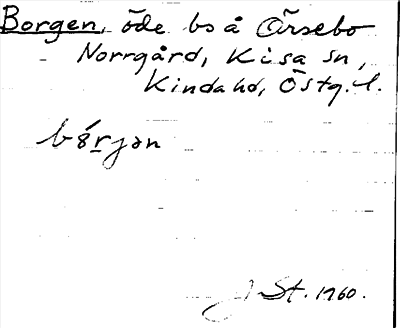 Borgen, öde bs å Örsebo
Norrgård, Kisa sn,
Kinda hd, Östg. l.
J St. 1960.